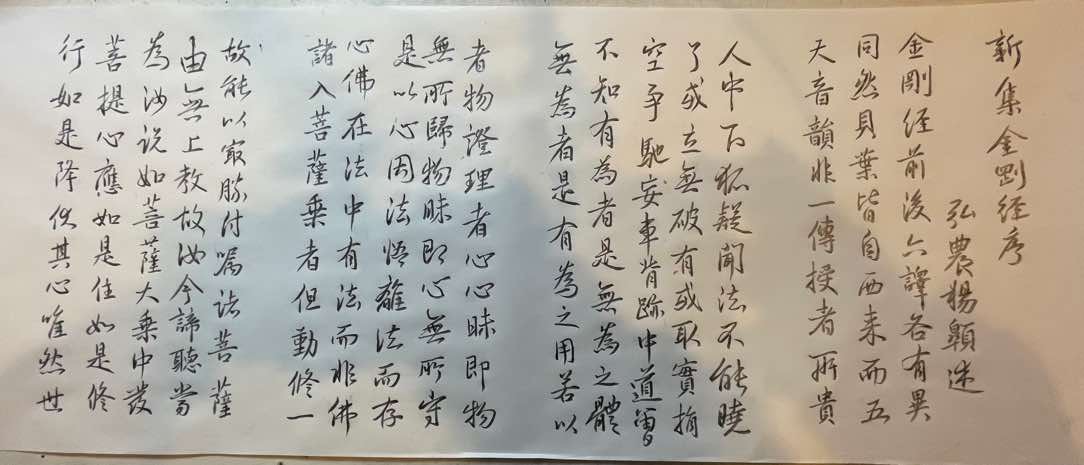 新集金剛經序
弘農楊顥述
金剛經前後六譯各有異
同然貝葉皆自西来而五
天音韻非一傳授者所貴
人中下狐疑聞法不能曉
了或立無破有或取實捐
空争馳妄車背跡中道曾
不知有為者是無為之體
無為者是有為之用若以
者物證理者心心昧即物
無所歸物昧即心無所守
是以心因法悟離法而存
心佛在法中有法而非佛
諸入菩薩乗者但動修一
故能以最勝付嘱諸菩薩
由無上教故汝今諦聽當
為汝说如菩薩大乗中發
菩提心應如是住如是修
行如是降伏其心唯然世